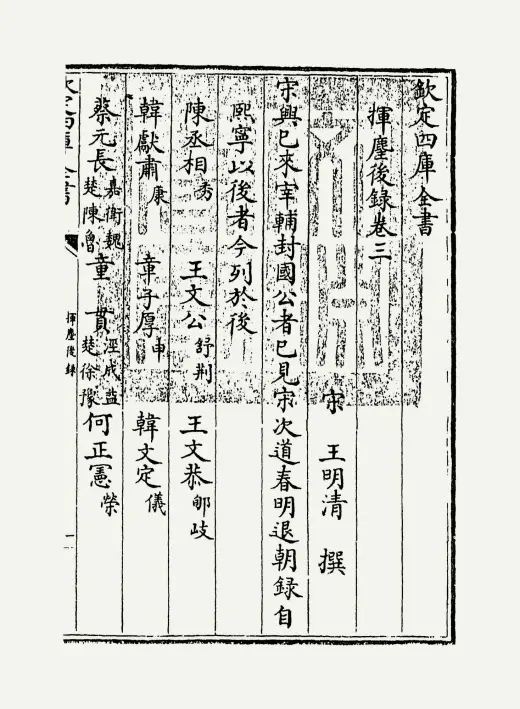 欽定四庫全書
揮麈後録卷三
宋 王明清 撰
宋興已來宰輔封國公者已見宋次道春明退朝録自
熙寧以後者今列於後
陳丞相秀 王文公舒荆 王文恭郇岐
韓獻肅康 章子厚申 韓文定儀
蔡元長嘉衛魏楚陳魯 童貫涇成益楚徐豫 何正憲榮
揮麈後録
一